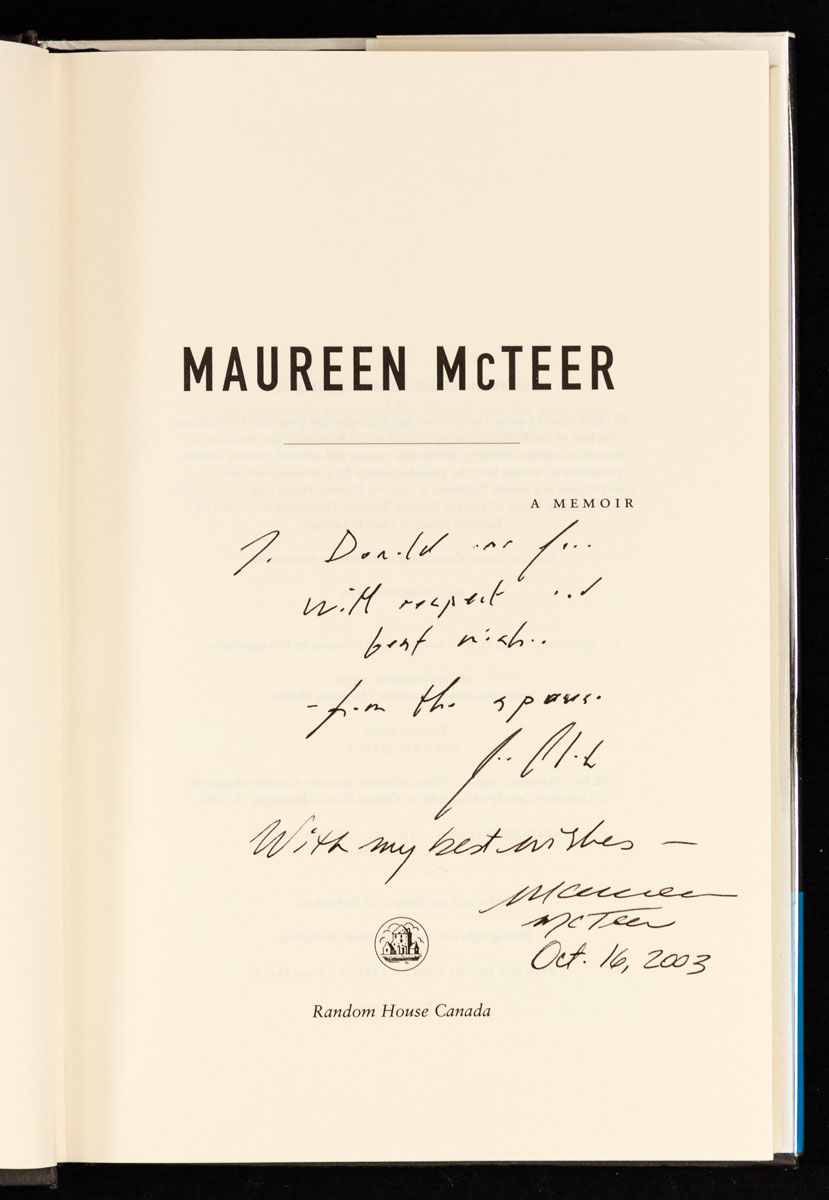 MAUREEN McTEER
A MEMOIR
To Donald and
with respect and
best wishes
- from the spouse.
Joe Clark
With my best wishes —
Maureen
McTeer
Oct. 16, 2003
Random House Canada